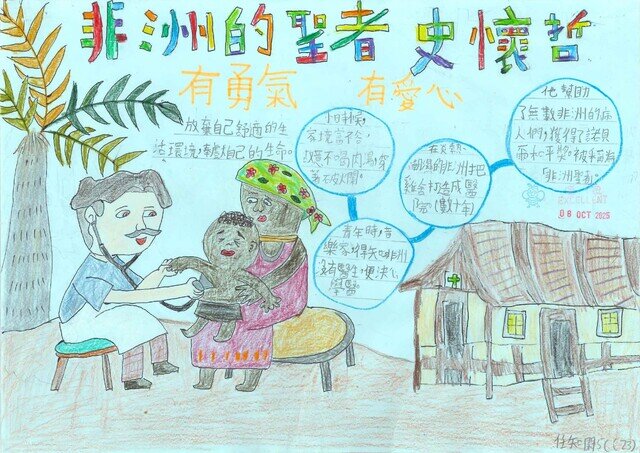 非洲的聖者 史懷哲
有勇氣 有愛心
放棄自己舒適的生
活環境,奉獻自己的生命。
小時候,
家境富裕,
不喝肉湯,穿
青年時,音
樂家得知非洲
沒有醫生,便決心
學醫
在炎熱、
潮濕的非洲把
雞舍打造成醫
院(數十年)
他幫助
了無數非洲的病
人們,獲得了諾貝
爾和平獎。被稱為
「非洲聖者」。
EXCELLENT
08 OCT 2025
5C(23)